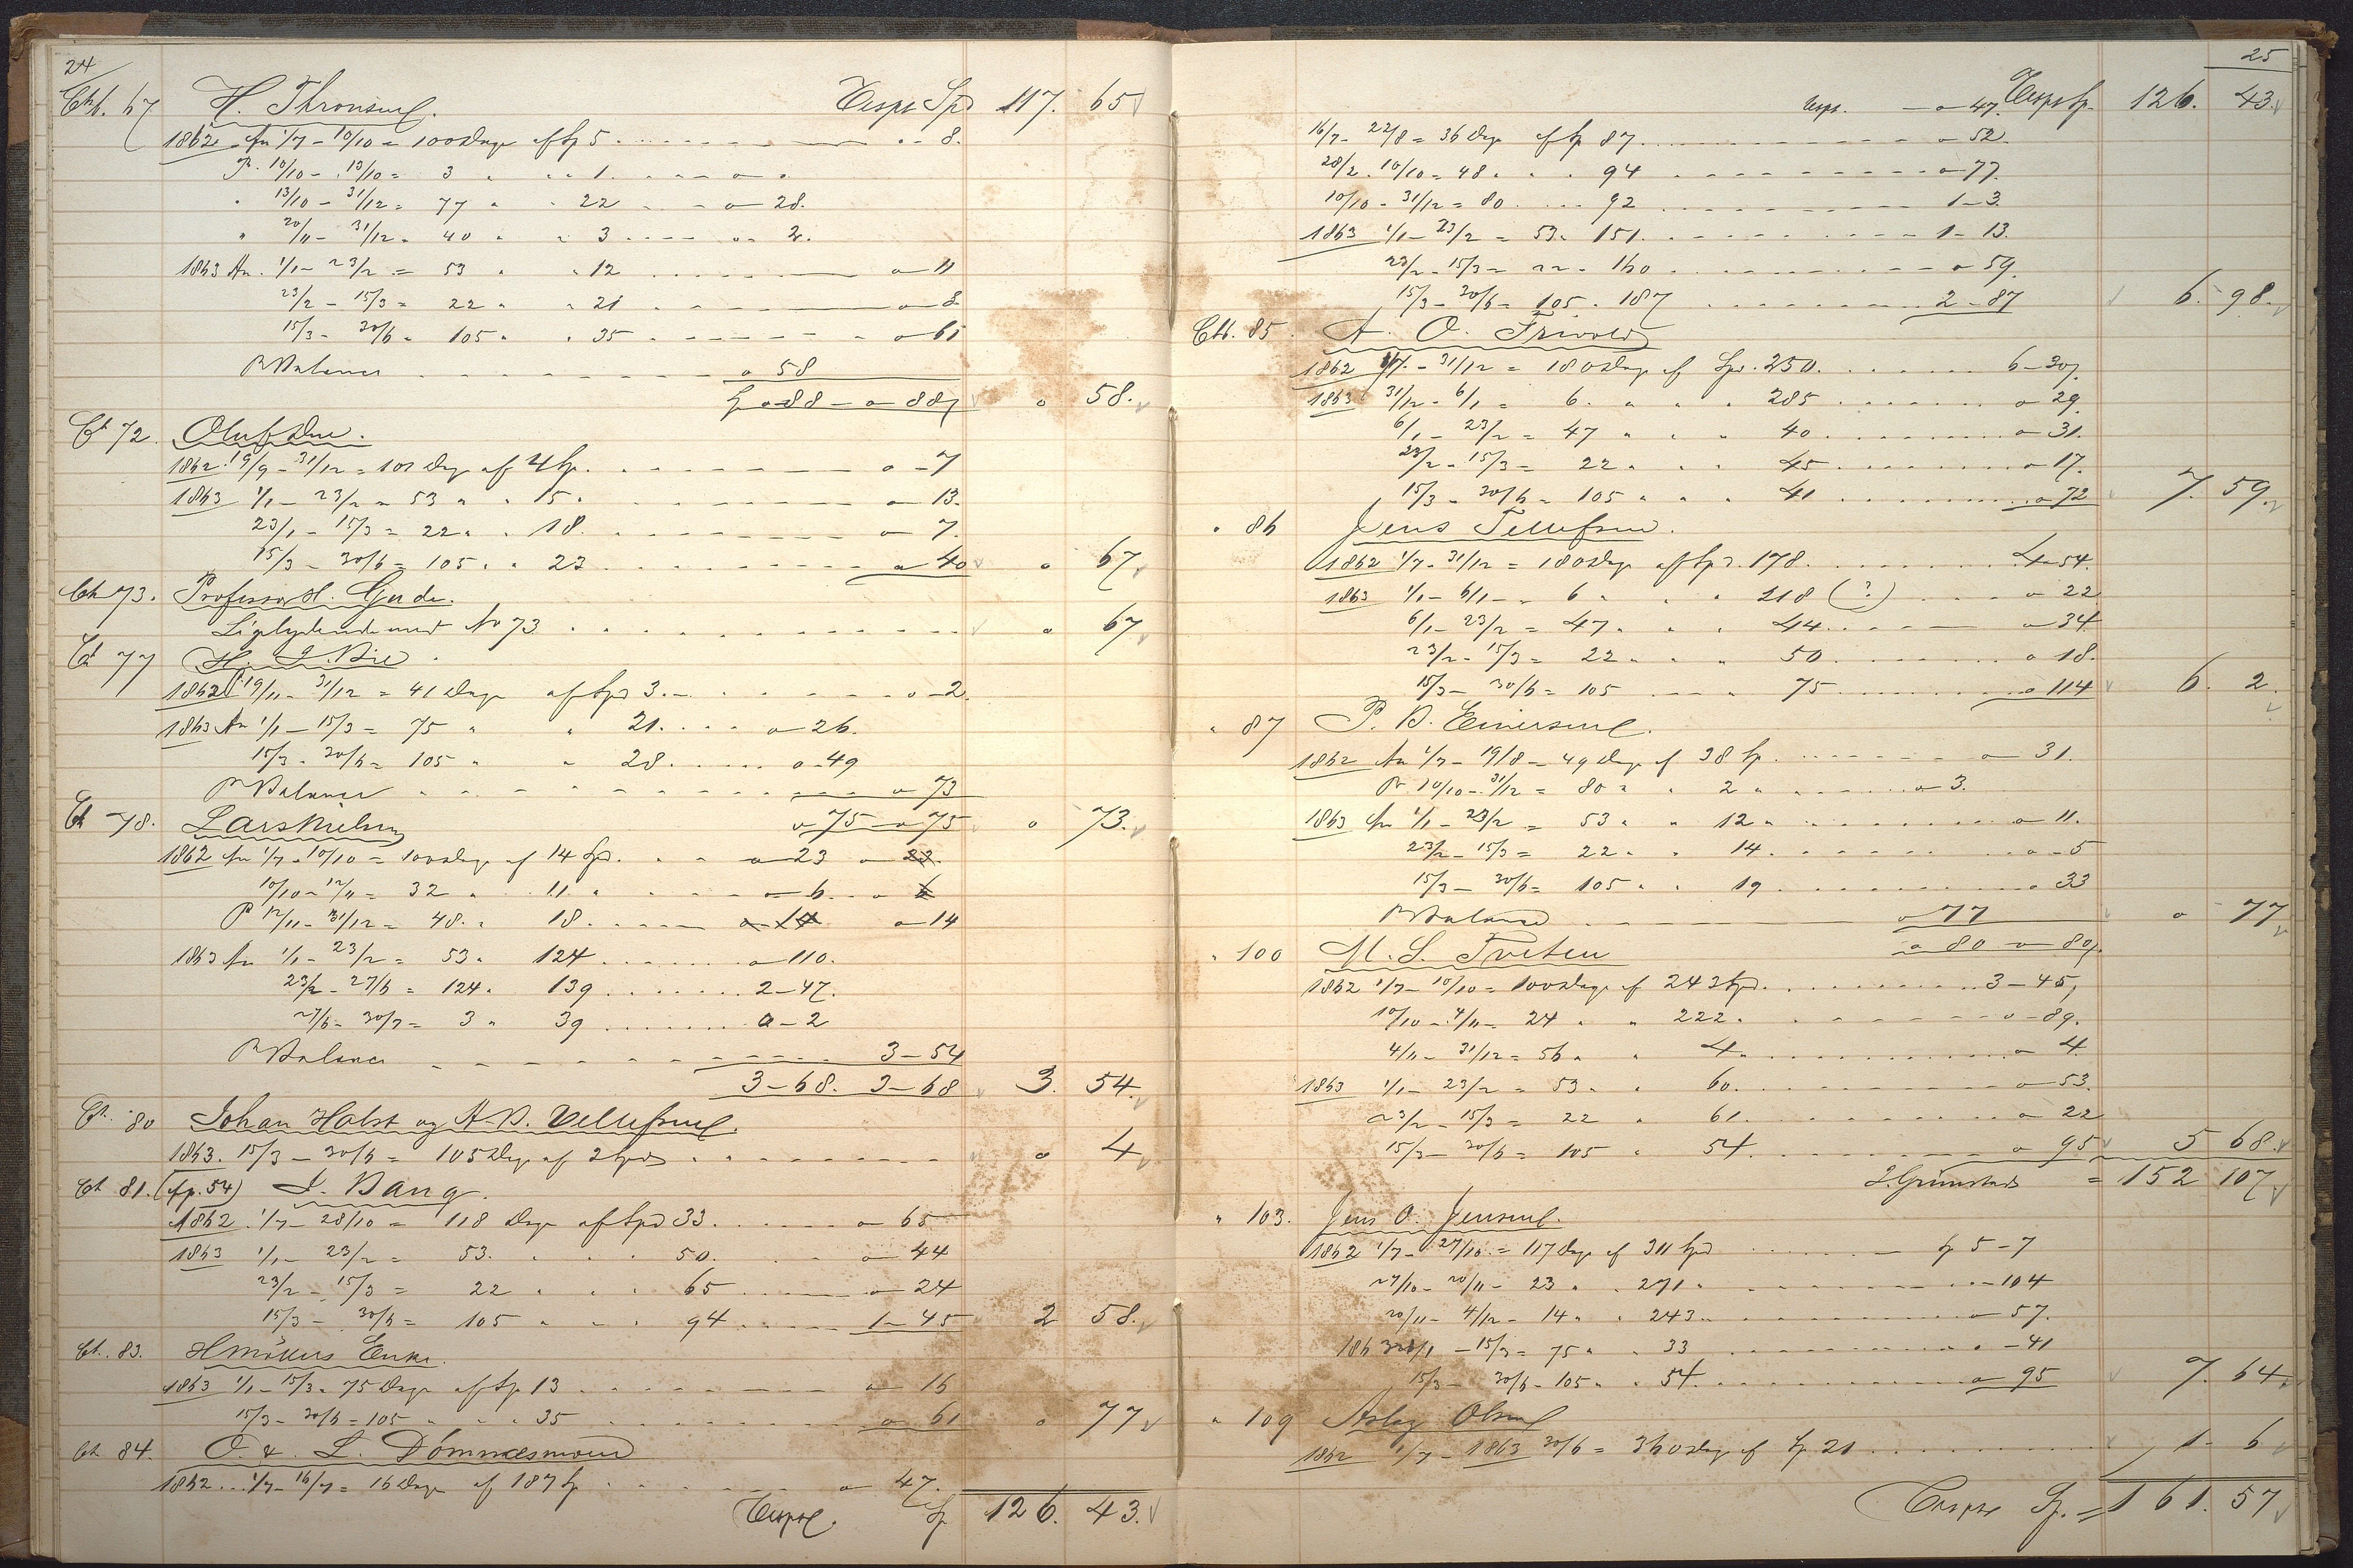 24
Cth. 67 H. Thronsen. Transp. Spd 117. 65
1862 fra 1/7 - 10/10 = 100 Dage af Sp 5 . . . 8.
P. 10/10 - 13/10 = 3 " " 1. - - o - o
" 13/10 - 31/12 = 77 " " 22 - - o - 28.
" 20/11 - 31/12 = 40 " " 3 - - - o - 2.
1863 An. 1/1 - 23/2 = 53 " " 12 - - - o - 11
23/2 - 15/3 = 22 " " 21 - - - o - 8
15/3 - 30/6 = 105 " " 35 - - - o - 61
P Balance - - - o 58
Sp o - 88 - o - 88 o 58.
Ct 72. Oluf Due.
1862 19/9 - 31/12 = 101 Dag af 4 Sp. - - - o - 7
1863 1/1 - 23/2 = 53 " " 15 " - - - o - 13.
23/1 - 15/3 = 22 " " 18. - - - o - 7.
15/3 - 30/6 = 105 " " 23 - - - o - 40 o 67
Ct 73. Professor H. Gude.
Ligelydende med No 73 . . . o 67
Ct 77 H. J. Bie.
1862 19/11 - 31/12 = 41 Dage af Spd 3. - - - o - 2
1863 An 1/1 - 15/3 = 75 " " 21. - - o - 26.
15/3 - 30/6 = 105 " " 28 - - o - 49
P Balance - - - o - 73
o 75 - o 75 o 73.
Ct 78. Lars Nielsen
1862 An 1/7 - 10/10 = 100 Dage af 14 Spd. - - o - 23 o - 23.
10/10 - 12/11 = 32 " 11 " - - o - 6 - o 6
P 12/11 - 31/12 = 48. " 18. - - o - 14 o - 14
1863 An 1/1 - 23/2 = 53 " 124 - - - o - 110.
23/2 - 27/6 = 124 " 139 - - - 2 - 47.
27/6 - 30/7 = 3 " 39 - - - o - 2
P Balance - - - 3 - 54
3 - 68. 3 - 68 3. 54.
Ct. 80 Johan Holst og A. B. Dellefsen.
1863. 15/3 - 30/6 = 105 Dage af 2 Spd - - - o 4
Ct 81. (fp. 54) J. Bang.
1862 1/7 - 28/10 = 118 Dage af Spd 33. - - o - 65
1863 1/1 - 23/2 = 53. " " 50. - - o - 44
23/2 - 15/3 = 22 " " " 65 - - o - 24
15/3 - 30/6 = 105 " " " 94 - - 1 - 45 2 58.
Ct. 83. H Møllers Enke.
1863 1/1 - 15/3 = 75 Dage af Sp 13 - - - o - 16
15/3 - 30/6 = 105 " " " 35 - - - o - 61 o 77
Ct 84. O. & L. Dømmesmoen
1862 . . . 1/7 - 16/7 = 16 Dage af 187 Sp - - - o - 47.
Transp. Sp 126. 43.
25
Transp. - o - 47. Transp Sp. 126. 43.
16/7 - 22/8 = 36 Dage af Sp 87 . . . o - 52.
28/2 - 10/10 = 48 " " " 94 . . . o - 77.
10/10 - 31/12 = 80 . . . 92 . . . 1 - 3.
1863 1/1 - 23/2 = 53 " 151. . . . 1 - 13.
23/2 - 15/3 = 22 " 160 . . . o - 59.
15/3 - 30/6 = 105 " 187 . . . 2 - 87 6. 98.
Ctt. 85. A. O. Frivold
1862 1/7 - 31/12 = 180 Dage af Spd. 250. . . . 6 - 30
1863 31/12 - 6/1 = 6. " " " 285 . . . o 29
6/1 - 23/2 = 47 " " " 40 . . . o - 31.
23/2 - 15/3 = 22 " " " 45 . . . o - 17.
15/3 - 30/6 = 105 " " " 41 . . . o 72 7. 59.
" 86 Jens Tellefsen.
1862 1/7 - 31/12 = 180 Dage af Spd. 178. . . . 4 - 54.
1863 1/1 - 6/1 = 6 " " " 218 (?) . . . o - 22
6/1 - 23/2 = 47 " " " 44. . . . o - 34
23/2 - 15/3 = 22 " " " 50. . . . o 18.
15/3 - 30/6 = 105 - - " 75. . . . o 114 6. 2.
" 87 P. B. Einersen.
1862 An 1/7 - 19/8 = 49 Dage af 38 Sp. . . . o - 31.
P 10/10 - 31/12 = 80 " " 2 " . . . o - 3.
1863 An 1/1 - 23/2 = 53 " " 12 " . . . o - 11.
23/2 - 15/3 = 22 " " 14. . . . o - 5
15/3 - 30/6 = 105 " " 19 . . . o 33
P Balance - - - o 77 o 77
o 80 - o 80.
" 100 M. L. Tveten
1862 1/7 - 10/10 = 100 Dage af 243 Spd. . . . 3 - 45,
10/10 - 4/11 = 24 " " 222. . . . o - 89.
4/11 - 31/12 = 56 " " 4. . . . o - 4.
1863 1/1 - 23/2 = 53 " " 60. . . . o - 53.
23/2 - 15/3 = 22 " 61. . . . o - 22
15/3 - 30/6 = 105 " 54. . . . o 95 5 68.
J. Grimstad = 152 107
" 103. Jens O. Jensen.
1862 1/7 - 27/10 = 117 Dage af 311 Spd . . . Sp 5 - 7
27/10 - 20/11 = 23 " " 271 " . . . - 104
20/11 - 4/12 = 14 " " 243 " . . . o - 57.
1863 1/1 - 15/3 = 75 " " 33 . . . - 41
15/3 - 30/6 = 105 " " 54. . . . o - 95 7. 64.
" 109 Aslag Olsen
1862 1/7 - 1863 30/6 = 360 Dage af Sp 21 . . . 1 - 6
Transp Sp. = 161. 57